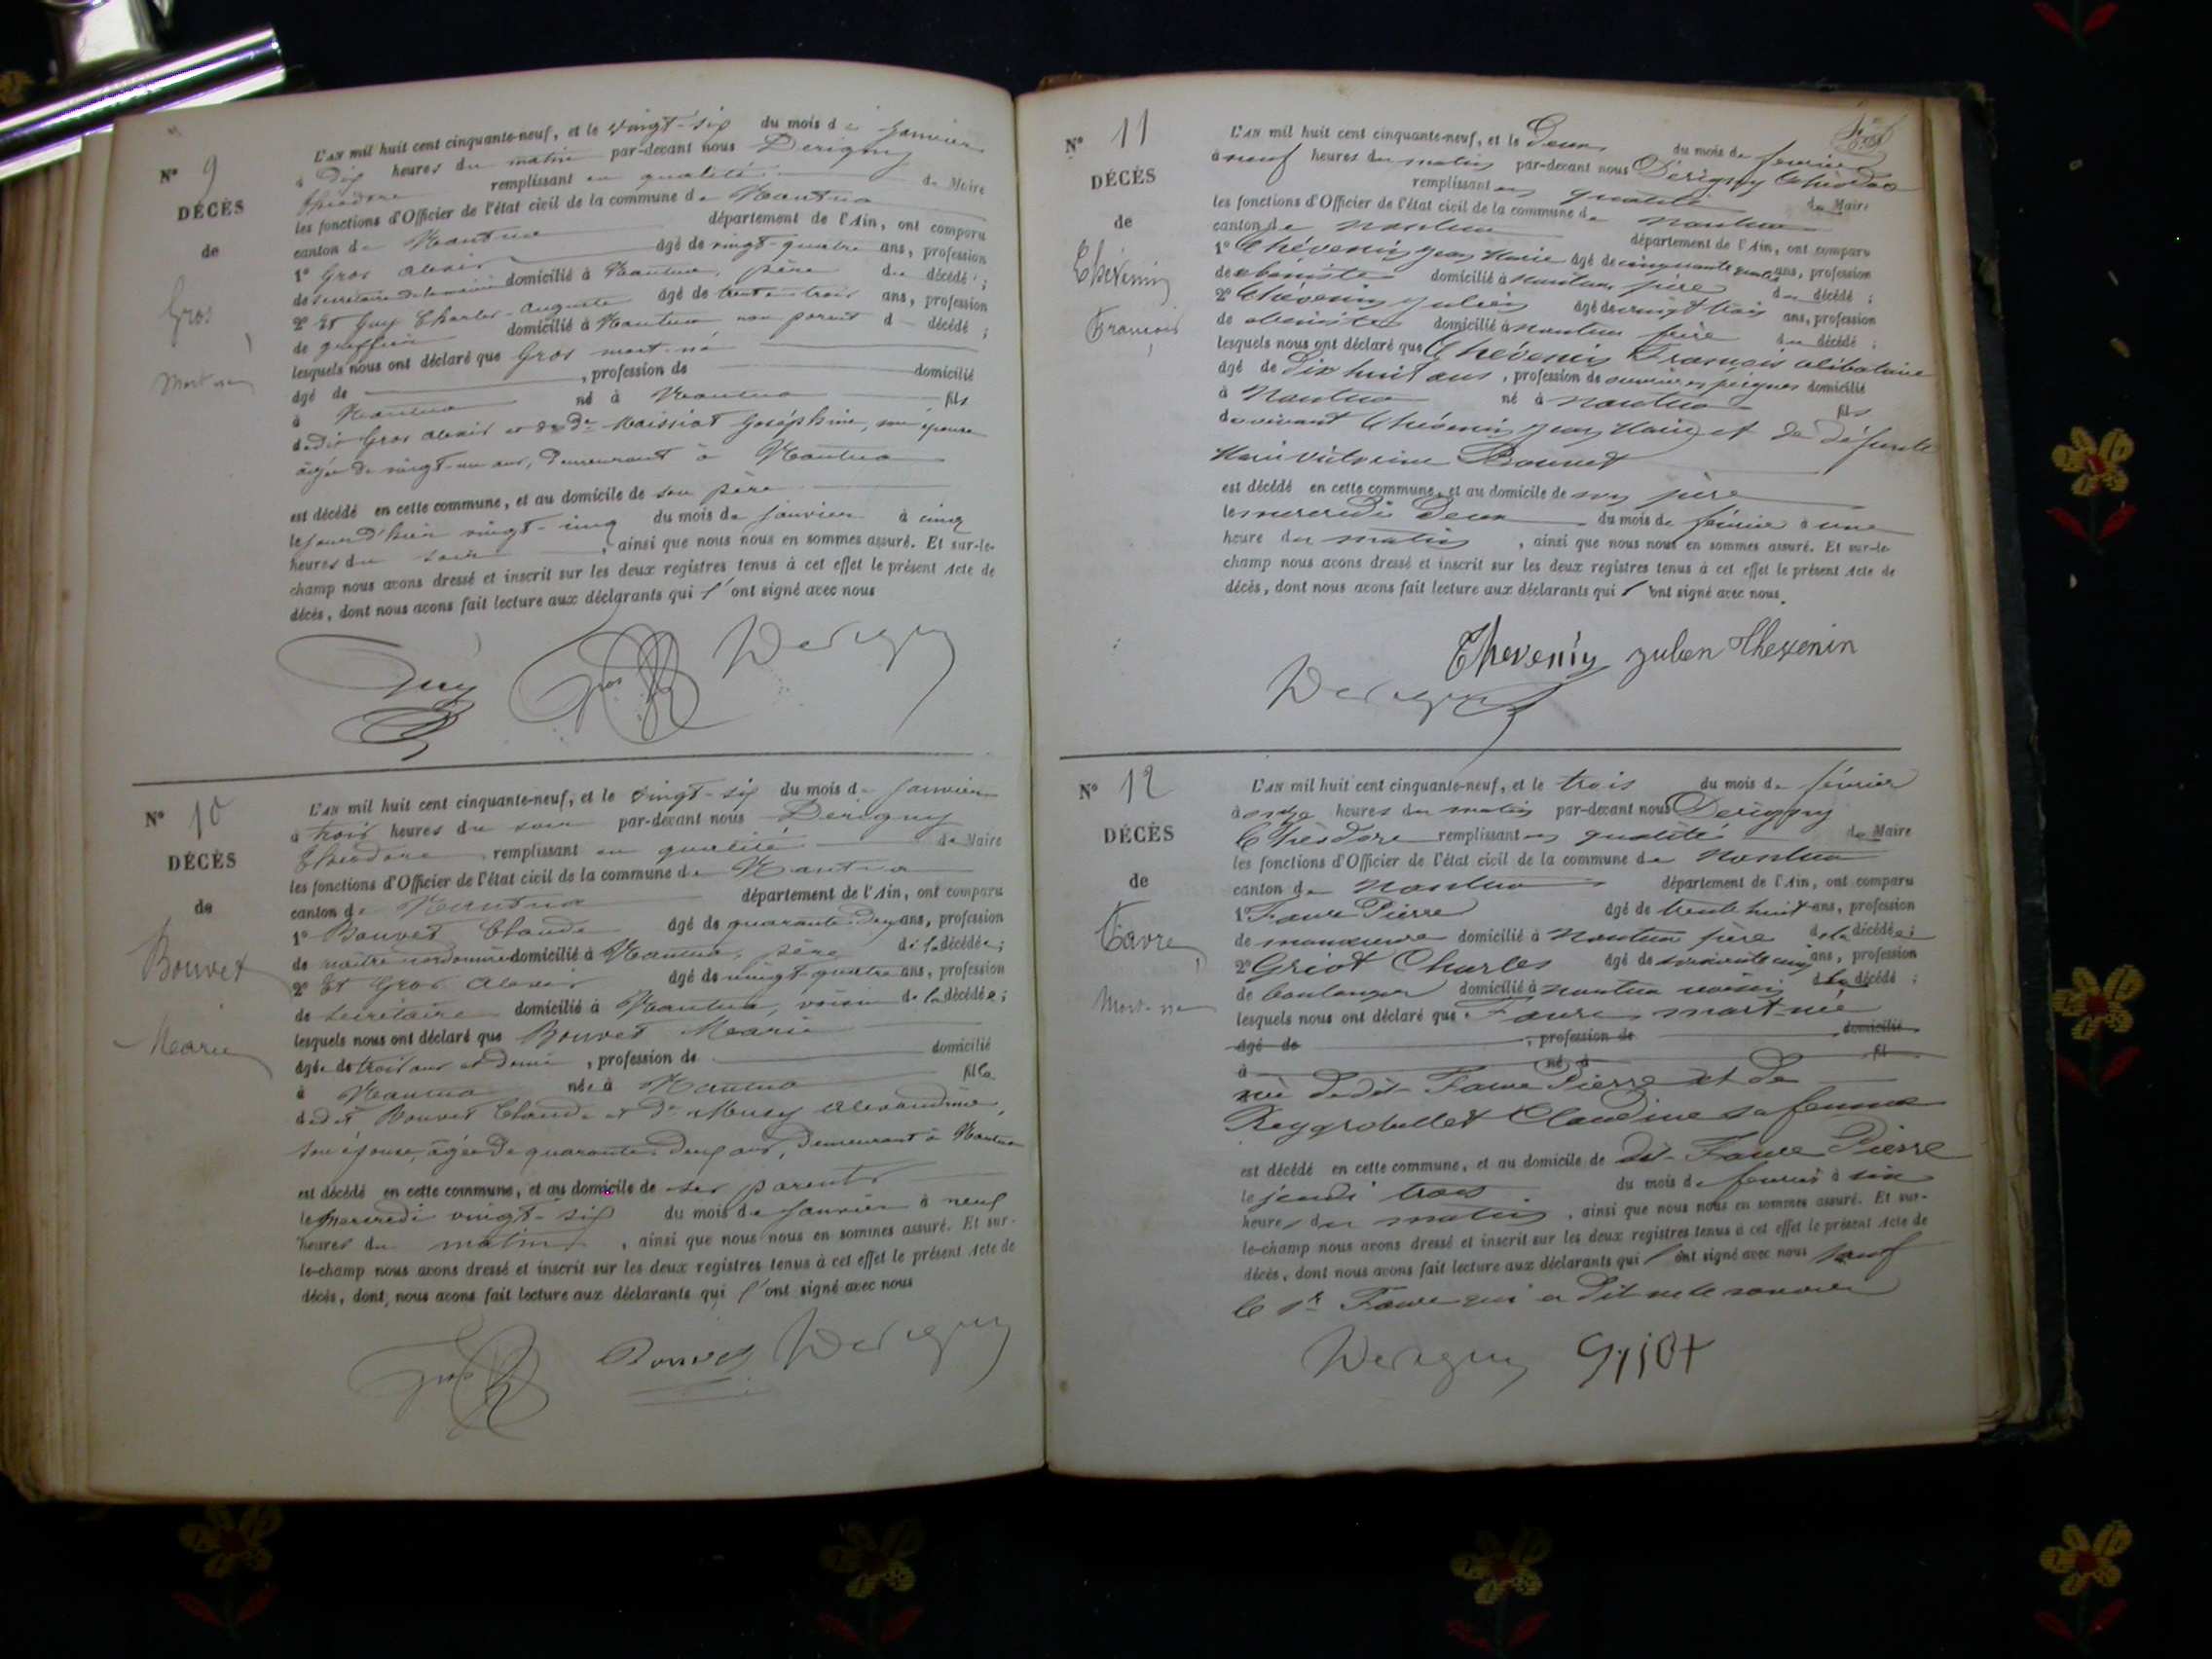 N° 9
DÉCÈS
de
Gros
Mort né
L'AN mil huit cent cinquante-neuf, et le vingt-six du mois de janvier
à Dix heures du matin par-devant nous Derigny
théodore remplissant en qualité de Maire
les fonctions d'Officier de l'état civil de la commune de Nantua
canton de Nantua département de l'Ain, ont comparu
1° Gros Alexis âgé de vingt-quatre ans, profession
de secrétaire de la mairie domicilié à Nantua, père du décédé ;
2° Et Guy Charles-Auguste âgé de trente-trois ans, profession
de greffier domicilié à Nantua non parent d décédé ;
lesquels nous ont déclaré que Gros mort-né
âgé de , profession de domicilié
à Nantua né à Nantua fils
dudit Gros Alexis et de de Maissiat Joséphine, son épouse
âgée de vingt-un ans, demeurant à Nantua
est décédé en cette commune, et au domicile de son père
le jour d'hier vingt-cinq du mois de janvier à cinq
heures du soir , ainsi que nous nous en sommes assuré. Et sur-le-
champ nous avons dressé et inscrit sur les deux registres tenus à cet effet le présent Acte de
décès, dont nous avons fait lecture aux déclarants qui l'ont signé avec nous
Guy Gros Derigny
N° 10
DÉCÈS
de
Bouvet
Marie
L'AN mil huit cent cinquante-neuf, et le vingt-six du mois de janvier
à trois heures du soir par-devant nous Derigny
théodore remplissant en qualité de Maire
les fonctions d'Officier de l'état civil de la commune de Nantua
canton de Nantua département de l'Ain, ont comparu
1° Bouvet Claude âgé de quarante-deux ans, profession
de maître cordonnier domicilié à Nantua, père de la décédée ;
2° Et Gros Alexis âgé de vingt-quatre ans, profession
de secrétaire domicilié à Nantua, voisin de la décédée ;
lesquels nous ont déclaré que Bouvet Marie
âgée de trois ans et demi , profession de domicilié
à Nantua née à Nantua fille
dudit Bouvet Claude et de Musy Alexandrine,
son épouse, âgée de quarante-deux ans, demeurant à Nantua
est décédé en cette commune, et au domicile de ses parents
le mercredi vingt-six du mois de janvier à neuf
heures du matin , ainsi que nous nous en sommes assuré. Et sur-
le-champ nous avons dressé et inscrit sur les deux registres tenus à cet effet le présent Acte de
décès, dont nous avons fait lecture aux déclarants qui l'ont signé avec nous
Gros Bouvet Derigny
N° 11
DÉCÈS
de
Thévenin
François
L'AN mil huit cent cinquante-neuf, et le Deux du mois de février
à neuf heures du matin par-devant nous Dérigny théodore
remplissant en qualité de Maire
les fonctions d'Officier de l'état civil de la commune de nantua
canton de nantua département de l'Ain, ont comparu
1° Thévenin Jean Marie âgé de cinquante quatre ans, profession
de ébéniste domicilié à nantua père du décédé ;
2° Thévenin Julien âgé de vingt trois ans, profession
de ébéniste domicilié à nantua frère du décédé ;
lesquels nous ont déclaré que Thévenin François célibataire
âgé de dix huit ans , profession de ouvrier en peignes domicilié
à Nantua né à nantua fils
du vivant Thévenin Jean Marie et de défunte
Marie Bouvet
est décédé en cette commune, et au domicile de son père
le mercredi deux du mois de février à une
heure du matin , ainsi que nous nous en sommes assuré. Et sur-le-
champ nous avons dressé et inscrit sur les deux registres tenus à cet effet le présent Acte de
décès, dont nous avons fait lecture aux déclarants qui l'ont signé avec nous.
Thevenin julien thevenin
Derigny
N° 12
DÉCÈS
de
Favre
Mort-né
L'AN mil huit cent cinquante-neuf, et le trois du mois de février
à onze heures du matin par-devant nous Derigny
Théodore remplissant en qualité de Maire
les fonctions d'Officier de l'état civil de la commune de nantua
canton de nantua département de l'Ain, ont comparu
1° Favre Pierre âgé de trente huit ans, profession
de manoeuvre domicilié à nantua père de la décédée ;
2° Griot Charles âgé de soixante cinq ans, profession
de boulanger domicilié à nantua voisin de la décédé ;
lesquels nous ont déclaré que Favre mort-né
âgé de , profession de domicilié
à né à fil
né dudit Favre Pierre et de
Reygrobellet Claudine sa femme
est décédé en cette commune, et au domicile de dit Favre Pierre
le jeudi trois du mois de février à six
heures du matin , ainsi que nous nous en sommes assuré. Et sur-
le-champ nous avons dressé et inscrit sur les deux registres tenus à cet effet le présent Acte de
décès, dont nous avons fait lecture aux déclarants qui l'ont signé avec nous sauf
le sr Favre qui a dit ne le savoir
Derigny Griot